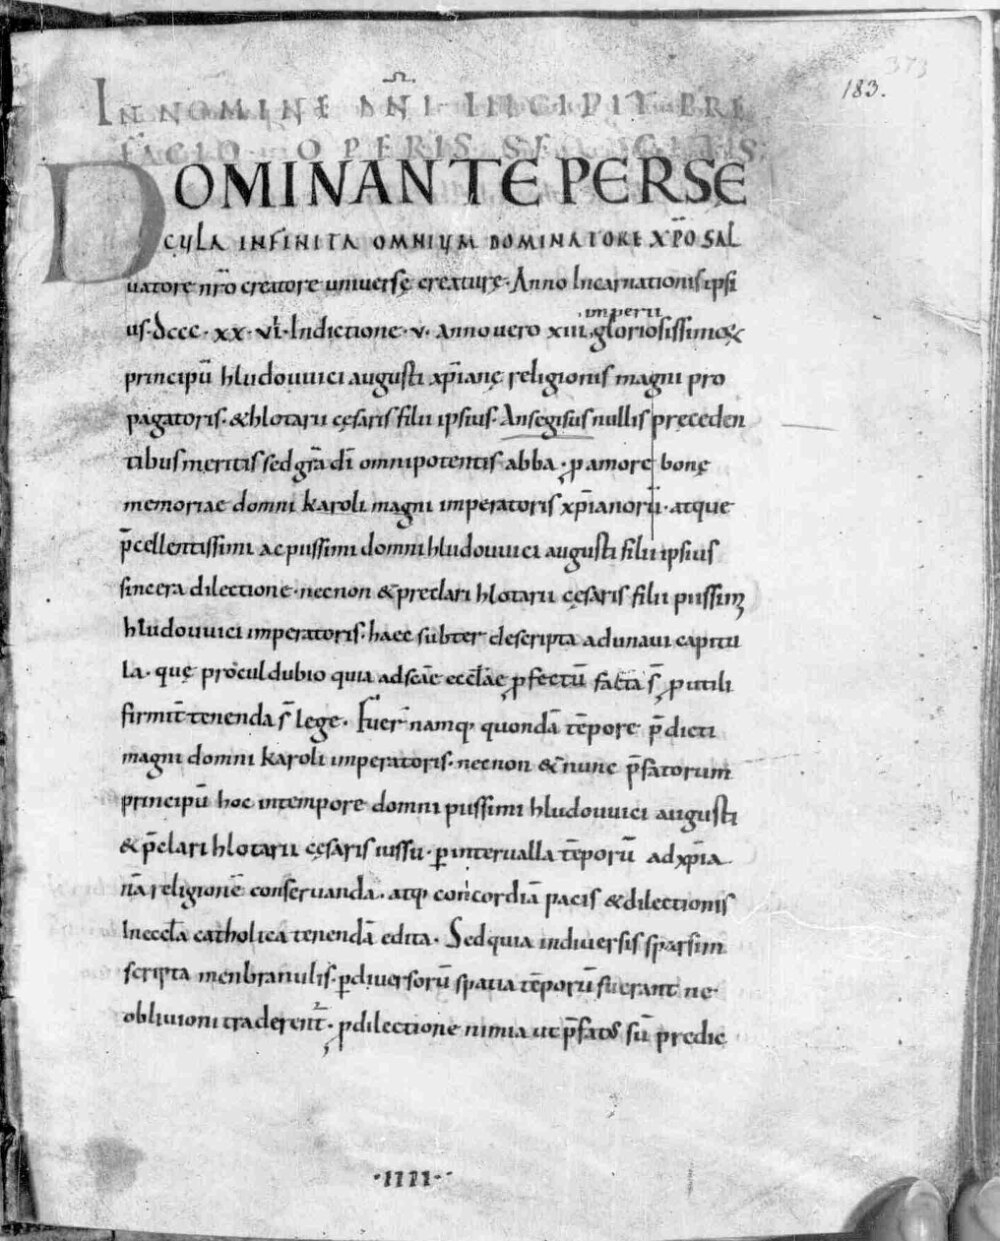 373
183.
IN NOMINE DN̄I INCIPIT PRE
FACIO OPERIS SEQUENTIS;
DOMINANTE PER SE
CULA INFINITA OMNIUM DOMINATORE XP̄O SAL
uatore nr̄o creatore uniuersę creaturę· Anno Incarnationis ipsi
us· dccc· xx· vi· Indictione· v· anno uero xiii imperii gloriosissimę &
principū hludouuici augusti xp̄ianę religionis magni pro
pagatoris· & hlotarii cęsaris filii ipsius· Ansegisus nullis pręceden
tibus meritis sed gr̄a dī omnipotentis abba· ꝓ amore bonę
memoriae domni karoli magni imperatoris xp̄ianorū· atque
p̄cellentissimi ac piissimi domni hludouuici augusti filii ipsius
sincera dilectione· necnon & preclari hlotarii cęsaris filii piissimi
hludouuici imperatoris· haec subter descripta adunaui capitu
la· quę procul dubio quia ad sc̄ae eccl̄ae ꝓfectū facta s̄ ꝓ utili
firmit̄ tenenda s̄ lege· Fuer̄ namq· quondā tēpore p̄dicti
magni domni karoli imperatoris· necnon & nunc p̄fatorum
principū hoc in tempore domni piissimi hludouuici augusti
& p̄clari hlotarii cęsaris iussu· ꝑ interualla tēporū ad xp̄ia
nā religionē conseruanda· atq· concordiā pacis & dilectionis
In eccl̄a catholica tenendā edita· Sed quia in diuersis sparsim
scripta menbranulis· ꝑ diuersorū spatia tēporū fuerant ne
obliuioni traderent̄· ꝓ dilectione nimia ut p̄fatus sū predic
·IIII·